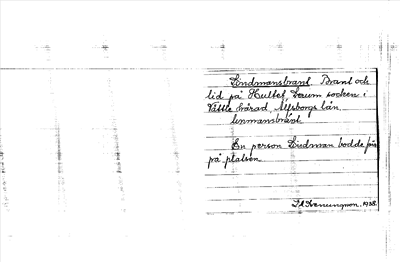 Lindmansbrant Brant och
lid på Hultet Lerum socken i
Vättle härad Älfsborgs län.
En person Lindman bodde för
på platsen
1938.